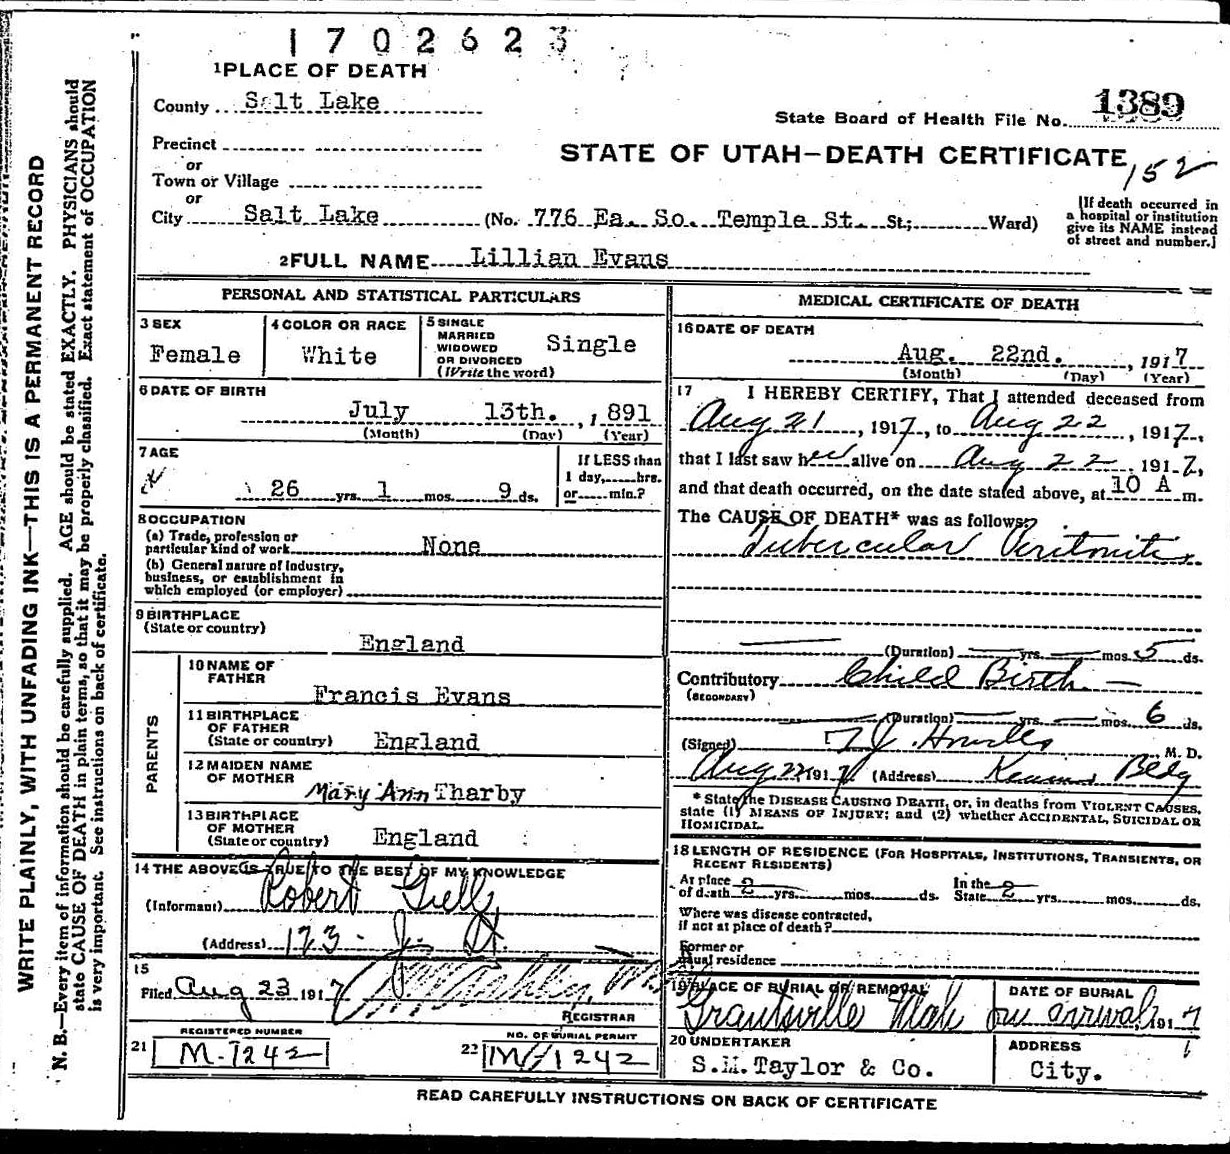 1702623
1 PLACE OF DEATH
County Salt Lake
State Board of Health File No. 1389
Precinct
or
Town or Village
or
STATE OF UTAH—DEATH CERTIFICATE
152
City Salt Lake (No. 776 Ea. So. Temple St. St.; Ward)
[If death occurred in
a hospital or institution
give its NAME instead
of street and number.]
2 FULL NAME Lillian Evans
PERSONAL AND STATISTICAL PARTICULARS
3 SEX
Female
4 COLOR OR RACE
White
5 SINGLE
MARRIED
WIDOWED
OR DIVORCED
(Write the word)
Single
6 DATE OF BIRTH
July 13th. , 1891
(Month) (Day) (Year)
7 AGE
26 yrs. 1 mos. 9 ds.
If LESS than
1 day, hrs.
or min.?
8 OCCUPATION
(a) Trade, profession or
particular kind of work None
(b) General nature of industry,
business, or establishment in
which employed (or employer)
9 BIRTHPLACE
(State or country)
England
PARENTS
10 NAME OF
FATHER
Francis Evans
11 BIRTHPLACE
OF FATHER
(State or country) England
12 MAIDEN NAME
OF MOTHER
Mary Ann Tharby
13 BIRTHPLACE
OF MOTHER
(State or country) England
14 THE ABOVE IS TRUE TO THE BEST OF MY KNOWLEDGE
(Informant) Robert
(Address) 173 J. St.
15
Filed Aug 23 1917
REGISTRAR
REGISTERED NUMBER
21 M-1242
NO. OF BURIAL PERMIT
22 M-1242
MEDICAL CERTIFICATE OF DEATH
16 DATE OF DEATH
Aug. 22nd. , 1917
(Month) (Day) (Year)
17 I HEREBY CERTIFY, That I attended deceased from
Aug 21 , 1917, to Aug 22 , 1917,
that I last saw her alive on Aug 22 , 1917,
and that death occurred, on the date stated above, at 10 A m.
The CAUSE OF DEATH* was as follows:
Tubercular Peritonitis
(Duration) yrs. mos. 5 ds.
Contributory Child Birth
(SECONDARY)
(Duration) yrs. mos. 6 ds.
(Signed) M. D.
Aug 22 1917 (Address)
* State the DISEASE CAUSING DEATH, or, in deaths from VIOLENT CAUSES,
state (1) MEANS OF INJURY; and (2) whether ACCIDENTAL, SUICIDAL OR
HOMICIDAL.
18 LENGTH OF RESIDENCE (FOR HOSPITALS, INSTITUTIONS, TRANSIENTS, OR
RECENT RESIDENTS)
At place of death 2 yrs. mos. ds. In the State 2 yrs. mos. ds.
Where was disease contracted,
if not at place of death?
Former or
usual residence
19 PLACE OF BURIAL OR REMOVAL
Grantsville Utah
DATE OF BURIAL
on arrival, 1917
20 UNDERTAKER
S.M. Taylor & Co.
ADDRESS
City.
READ CAREFULLY INSTRUCTIONS ON BACK OF CERTIFICATE
WRITE PLAINLY, WITH UNFADING INK—THIS IS A PERMANENT RECORD
N. B.—Every item of information should be carefully supplied. AGE should be stated EXACTLY. PHYSICIANS should
state CAUSE OF DEATH in plain terms, so that it may be properly classified. Exact statement of OCCUPATION
is very important. See instructions on back of certificate.